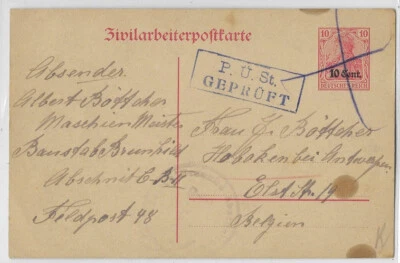 Zivilarbeiterpostkarte
10 10
10 Cent.
DEUTSCHES REICH
P. Ü. St.
GEPRÜFT
Absender.
Albert Böttcher
Maschien Meister
Baustab Brunhild
Abschnit C-B-II
Feldpost 48
Frau J. Böttcher
Hoboken bei Antwerpen
Elst Str 19
Belgien